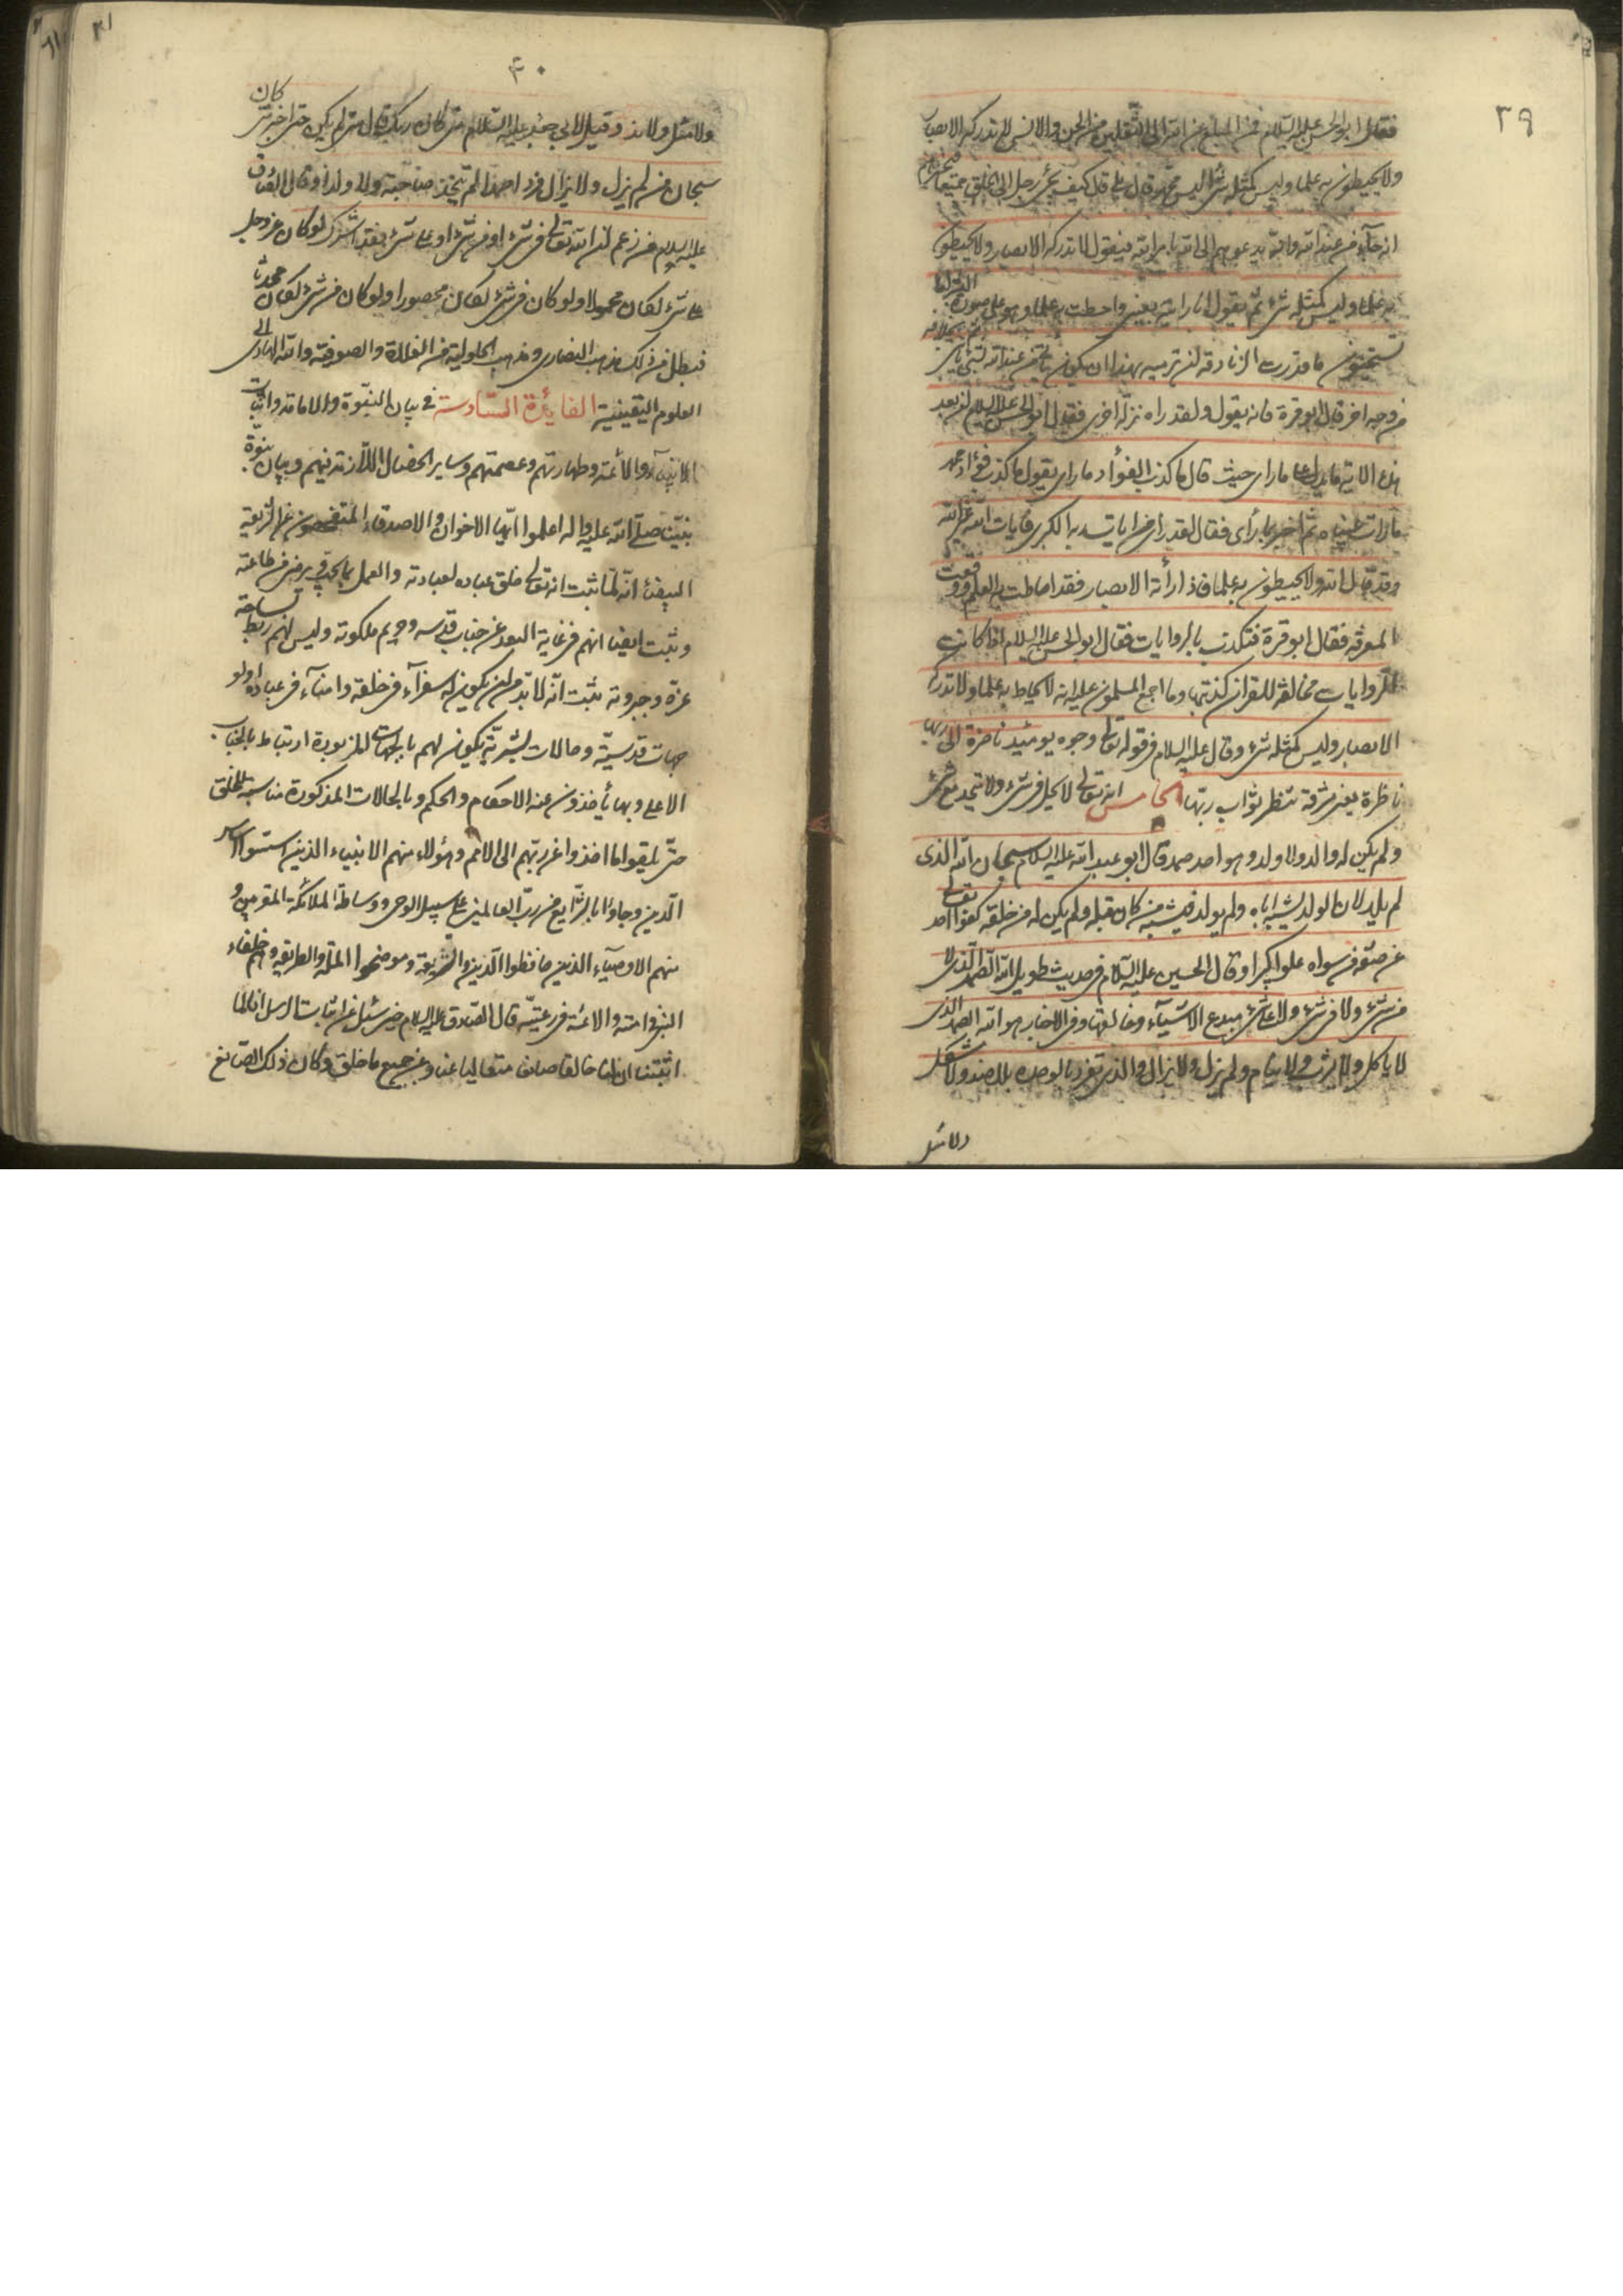 ٣٩
فقال ابو الحسن عليه السلام فمن المبلغ عن الله الى الثقلين من الجن والانس لا تدركه الابصار
ولا يحيطون به علما وليس كمثله شئ اليس محمد قال بلى قال كيف يجئ رجل الى الخلق جميعا فيخبرهم
انه جاء من عند الله وانه يدعوهم الى الله بامر الله فيقول لا تدركه الابصار ولا يحيطون
به علما وليس كمثله شئ ثم يقول انا رايته بعيني واحطت به علما وهو على صورة البشر اما
تستحيون ما قدرت الزنادقة ان ترميه بهذا ان يكون ياتي من عند الله بشئ ثم ياتي بخلافه
من وجه اخر قال ابو قرة فانه يقول ولقد راه نزلة اخرى فقال ابو الحسن عليه السلام ان بعد
هذه الاية ما يدل على ما راى حيث قال ما كذب الفؤاد ما راى يقول ما كذب فؤاد محمد
ما رات عيناه ثم اخبر بما رأى فقال لقد رأى من ايات ربه الكبرى فايات الله غير الله
وقد قال الله ولا يحيطون به علما فاذا رأته الابصار فقد احاطت به العلم ووقعت
المعرفة فقال ابو قرة فتكذب بالروايات فقال ابو الحسن عليه السلام اذا كانت
الروايات مخالفة للقران كذبتها وما اجمع المسلمون عليه انه لا يحاط به علما ولا تدركه
الابصار وليس كمثله شئ وقال عليه السلام في قوله تعالى وجوه يومئذ ناضرة الى ربها
ناظرة يعني مشرقة تنتظر ثواب ربها الخامس انه تعالى لا يحل في شئ ولا يتحد مع شئ
ولم يكن له والد ولا ولد وهو احد صمد قال ابو عبد الله عليه السلام سبحان الله الذى
لم يلد لان الولد يشبه اباه ولم يولد فيشبه من كان قبله ولم يكن له من خلقه كفوا احد تعالى
عن صفة من سواه علوا كبيرا وقال الحسين عليه السلام في حديث طويل الله الصمد الذى لا
من شئ ولا في شئ ولا على شئ مبدع الاشياء وخالقها وفي الاخبار هو الله الصمد الذى
لا ياكل ولا يشرب ولا ينام ولم يزل ولا يزال والذى تفرد بالوحدة بلا ضد ولا شكل
ولا مثل
٤٠
ولا مثل ولا ند وقيل لابي جعفر عليه السلام متى كان ربك قال متى لم يكن حتى اخبرك متى كان
سبحان من لم يزل ولا يزال فردا صمدا لم يتخذ صاحبة ولا ولدا وقال الصادق
عليه السلام من زعم ان الله تعالى في شئ او من شئ او على شئ فقد اشرك لو كان عز وجل
على شئ لكان محمولا ولو كان في شئ لكان محصورا ولو كان من شئ لكان محدثا
فبطل من ذلك مذهب النصارى ومذهب الحلولية من الغلاة والصوفية والله الهادى الى
العلوم اليقينية الفايدة السادسة في بيان النبوة والامامة واثبات
الانبياء والائمة وطهارتهم وعصمتهم وساير الخصال اللازمة فيهم وبيان نبوة
نبينا صلى الله عليه واله اعلموا ايها الاخوان والاصدقاء المتفحصون عن الشريعة
البيضاء انه لما ثبت انه تعالى خلق عباده لعبادته والعمل بما يحبه ويرضى من طاعته
وثبت ايضا انهم في غاية البعد عن جناب قدسه وحريم ملكوته وليس لهم ربط بساحة
عزه وجبروته يثبت انه لا بد من ان يكون له سفرآء في خلقه وامنآء في عباده اولو
جهات قدسية وحالات بشرية يكون لهم بالجهات المزبورة ارتباط بالجناب
الاعلى وبها يأخذون عنه الاحكام والحكم وبالحالات المذكورة مناسبة للخلق
حتى يلقوا ما اخذوا عن ربهم الى الامم وهؤلاء منهم الانبياء الذين اسسوا اساس
الدين وجاؤا بالشرايع من رب العالمين على سبيل الوحى ووساطة الملائكة المقربين و
منهم الاوصياء الذين حافظوا الدين والشريعة وموضحوا الملة والطريقة وهم خلفاء
النبي في امته والائمة في رعيته قال الصادق عليه السلام حين سئل عن اثبات الرسل انا لما
اثبتنا ان لنا خالقا صانعا متعاليا عنا وعن جميع ما خلق وكان ذلك الصانع
٤١